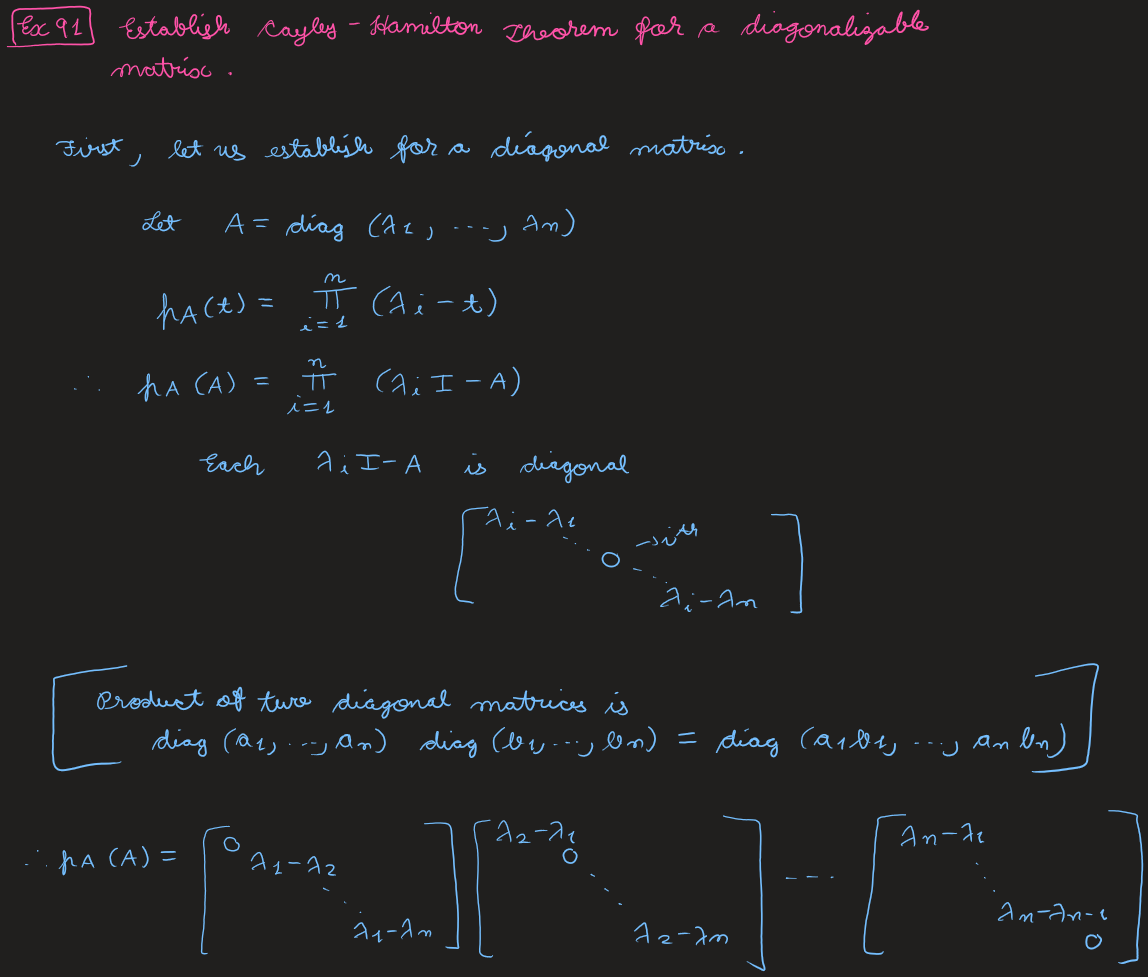 Ex 91 Establish Cayley-Hamilton Theorem for a diagonalizable
matrix.
First, let us establish for a diagonal matrix.
Let A = diag (λ1, ---, λn)
pA(t) = n∏i=1 (λi - t)
∴ pA(A) = n∏i=1 (λi I - A)
Each λi I - A is diagonal
[λi - λ1 ... 0 → ith ... λi - λn]
[Product of two diagonal matrices is
diag (a1, ---, an) diag (b1, ---, bn) = diag (a1b1, ---, an bn)]
∴ pA(A) = [0 λ1-λ2 ... λ1-λn] [λ2-λ1 0 ... λ2-λn] ---- [λn-λ1 ... λn-λn-1 0]